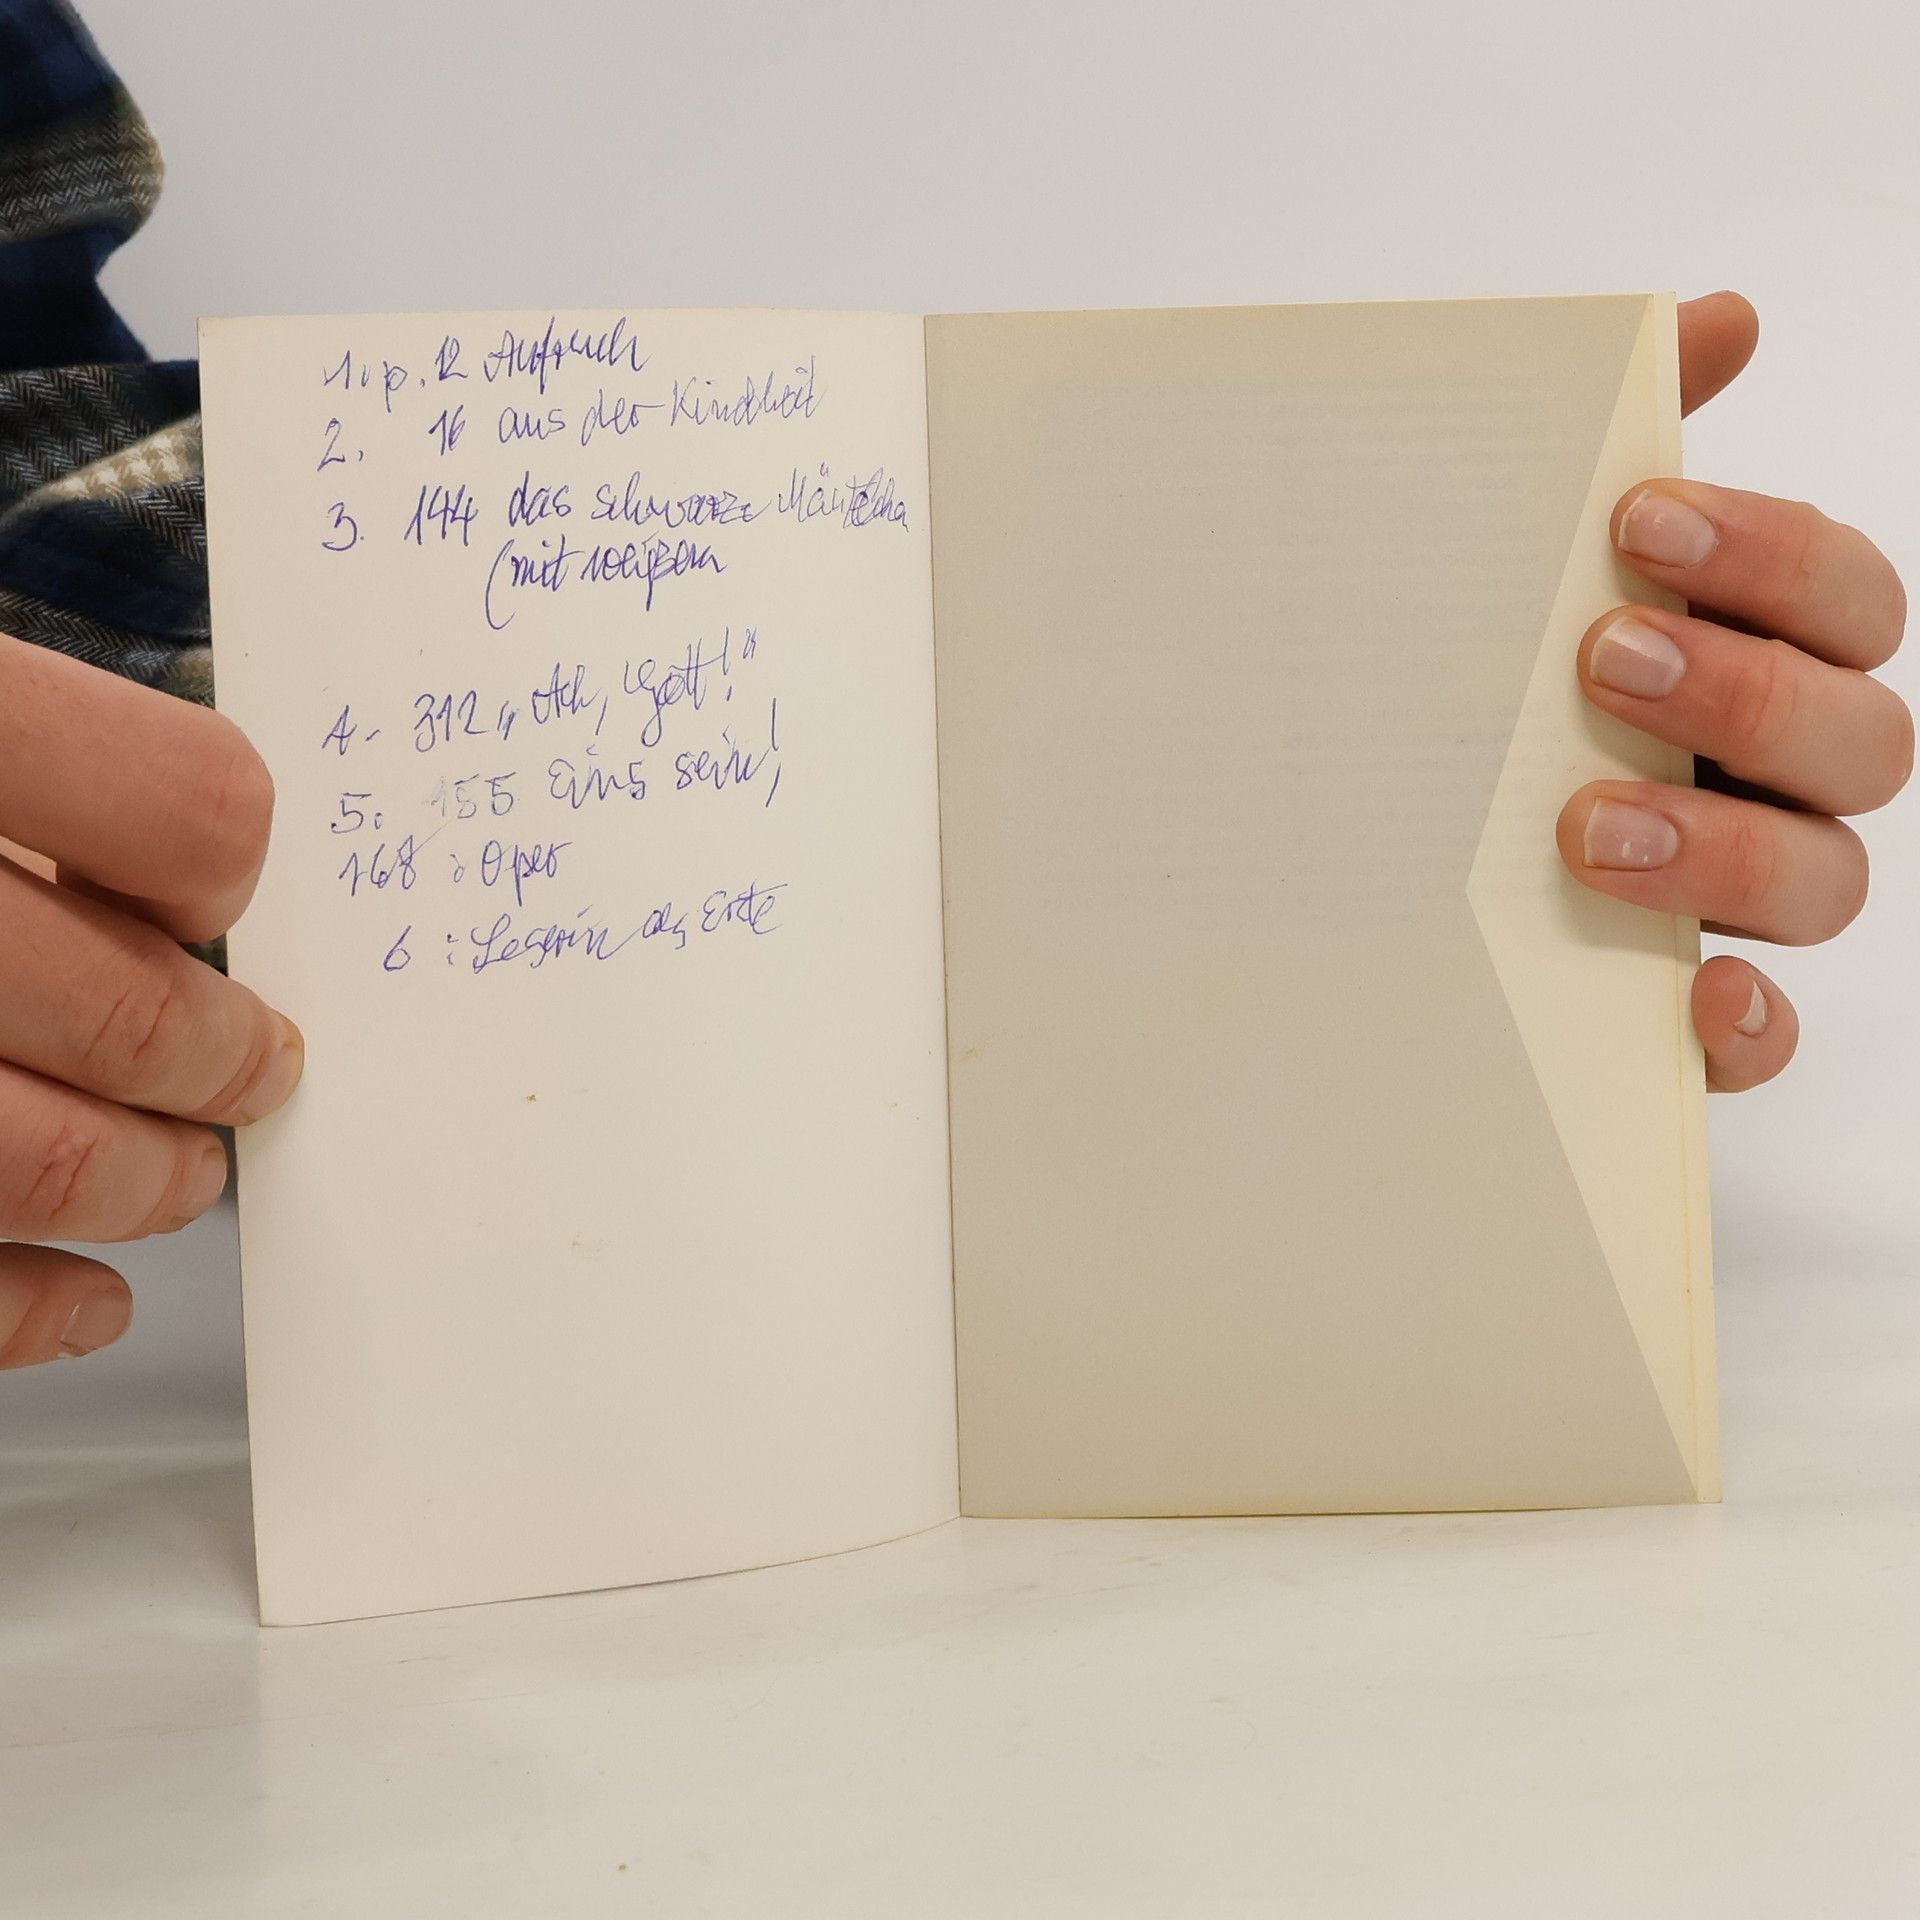 1. p. 12
2. 16 aus der Kindheit
3. 144 das schwarze
(mit weißem
4. 312 „Ach, Gott!“
5. 155 Eins sein!
168 : Oper
6 : Leserin als Erste